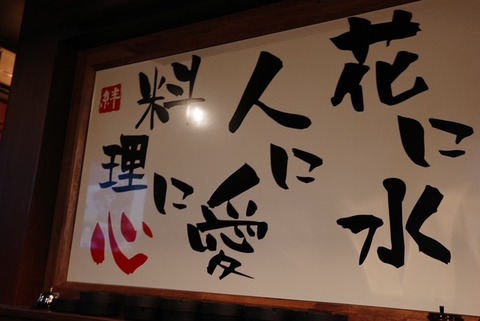 花に水
人に愛
料理に心
絆